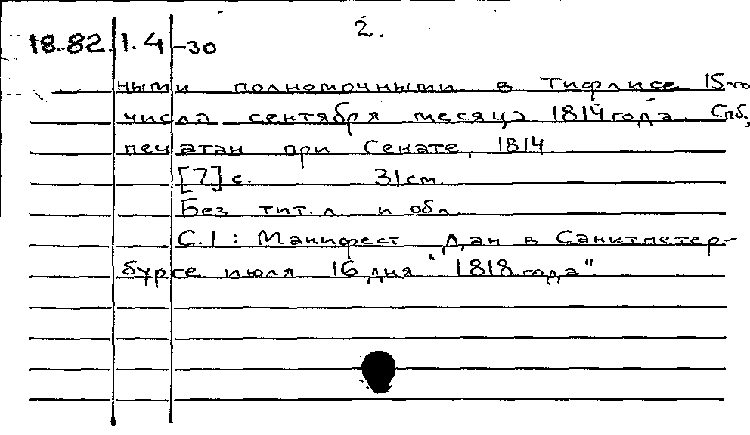 2.
18.82.1.4-30
ными полномочными в Тифлисе 15-го
числа сентября месяца 1814 года Спб,
печатан при Сенате, 1814
[7] с. 31 см.
Без тит. л и обл
С.1: Манифест дан в Санктпетер-
бурге июля 16 дня "1818 года"